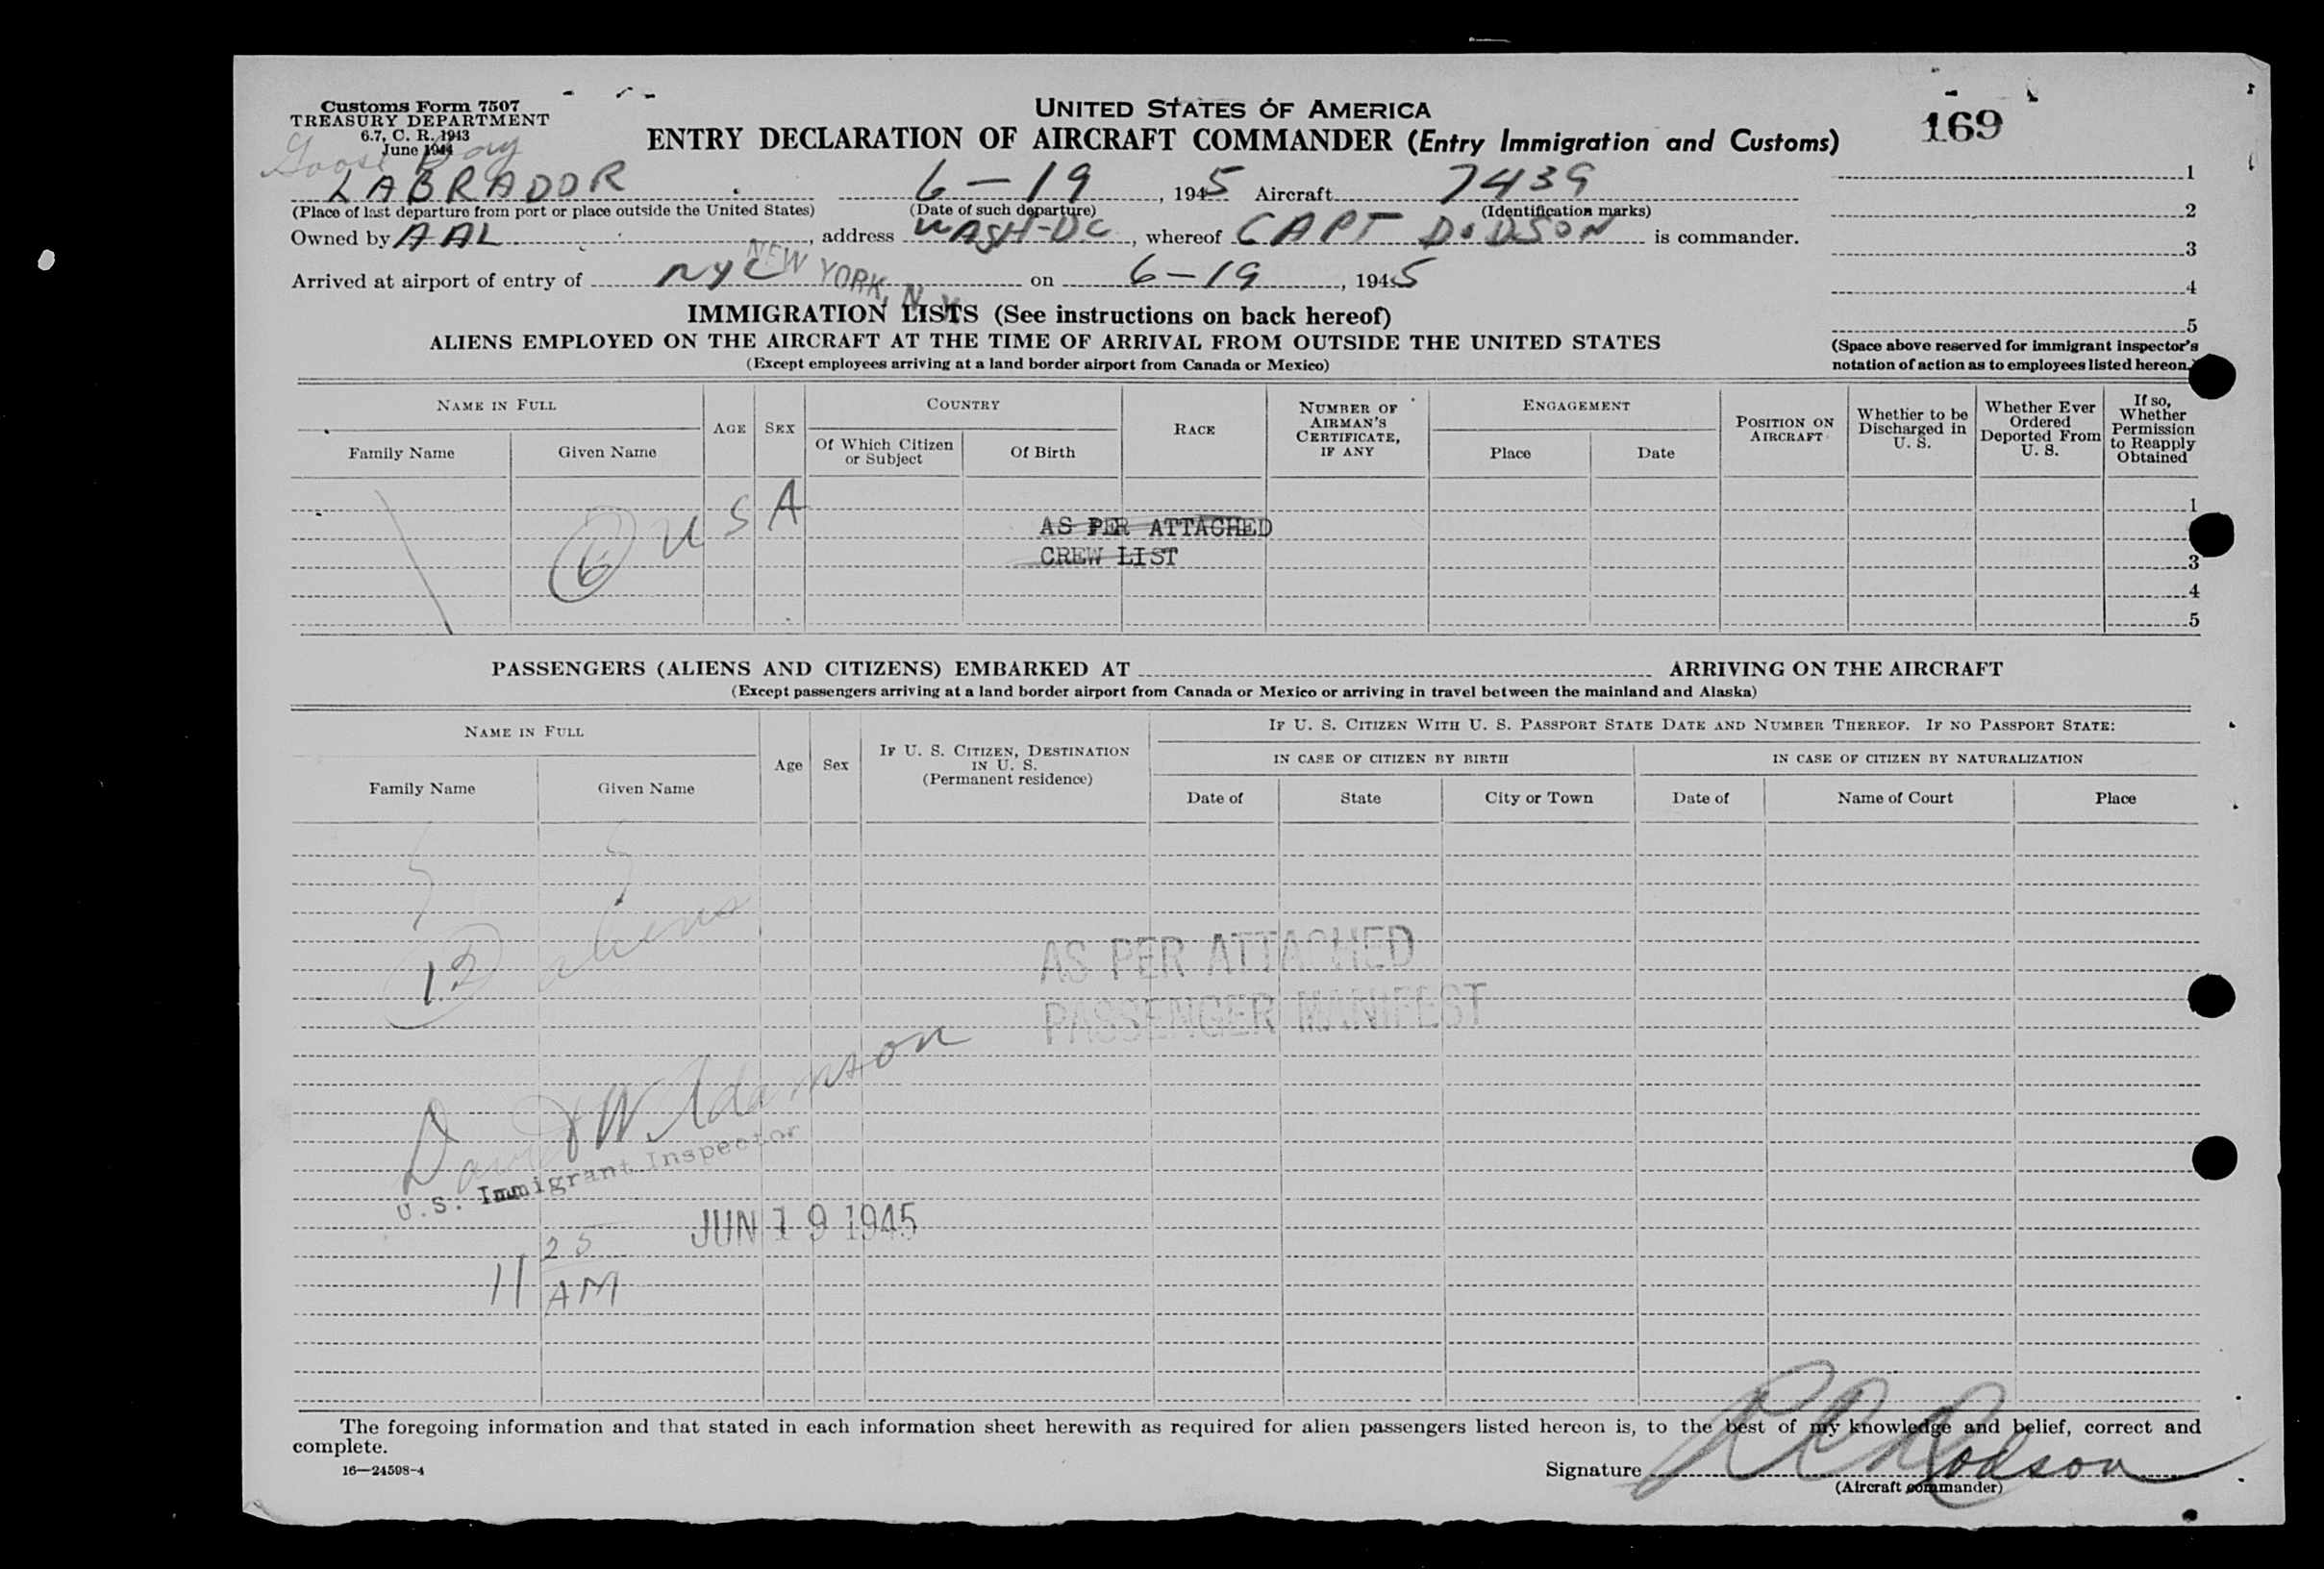 Customs Form 7507
TREASURY DEPARTMENT
6.7, C. R. 1943
June 1944
UNITED STATES OF AMERICA
ENTRY DECLARATION OF AIRCRAFT COMMANDER (Entry Immigration and Customs)
169
Goose Bay
LABRADOR 6-19, 1945 Aircraft 7439
(Place of last departure from port or place outside the United States) (Date of such departure) (Identification marks)
Owned by AAL, address WASH-DC, whereof CAPT DODSON is commander.
Arrived at airport of entry of NYC on 6-19, 1945
NEW YORK, N. Y.
1
2
3
4
5
(Space above reserved for immigrant inspector's
notation of action as to employees listed hereon.)
IMMIGRATION LISTS (See instructions on back hereof)
ALIENS EMPLOYED ON THE AIRCRAFT AT THE TIME OF ARRIVAL FROM OUTSIDE THE UNITED STATES
(Except employees arriving at a land border airport from Canada or Mexico)
NAME IN FULL
Family Name Given Name
AGE SEX
COUNTRY
Of Which Citizen
or Subject
Of Birth
RACE
NUMBER OF
AIRMAN'S
CERTIFICATE,
IF ANY
ENGAGEMENT
Place Date
POSITION ON
AIRCRAFT
Whether to be
Discharged in
U. S.
Whether Ever
Ordered
Deported From
U. S.
If so,
Whether
Permission
to Reapply
Obtained
6 USA
AS PER ATTACHED
CREW LIST
1
3
4
5
PASSENGERS (ALIENS AND CITIZENS) EMBARKED AT ARRIVING ON THE AIRCRAFT
(Except passengers arriving at a land border airport from Canada or Mexico or arriving in travel between the mainland and Alaska)
NAME IN FULL
Family Name Given Name
Age Sex
IF U. S. CITIZEN, DESTINATION
IN U. S.
(Permanent residence)
IF U. S. CITIZEN WITH U. S. PASSPORT STATE DATE AND NUMBER THEREOF. IF NO PASSPORT STATE:
IN CASE OF CITIZEN BY BIRTH IN CASE OF CITIZEN BY NATURALIZATION
Date of State City or Town Date of Name of Court Place
12 aliens
AS PER ATTACHED
PASSENGER MANIFEST
David W Adamson
U.S. Immigrant Inspector
JUN 19 1945
11 25
AM
The foregoing information and that stated in each information sheet herewith as required for alien passengers listed hereon is, to the best of my knowledge and belief, correct and
complete.
16—24598-4
Signature Dodson
(Aircraft commander)